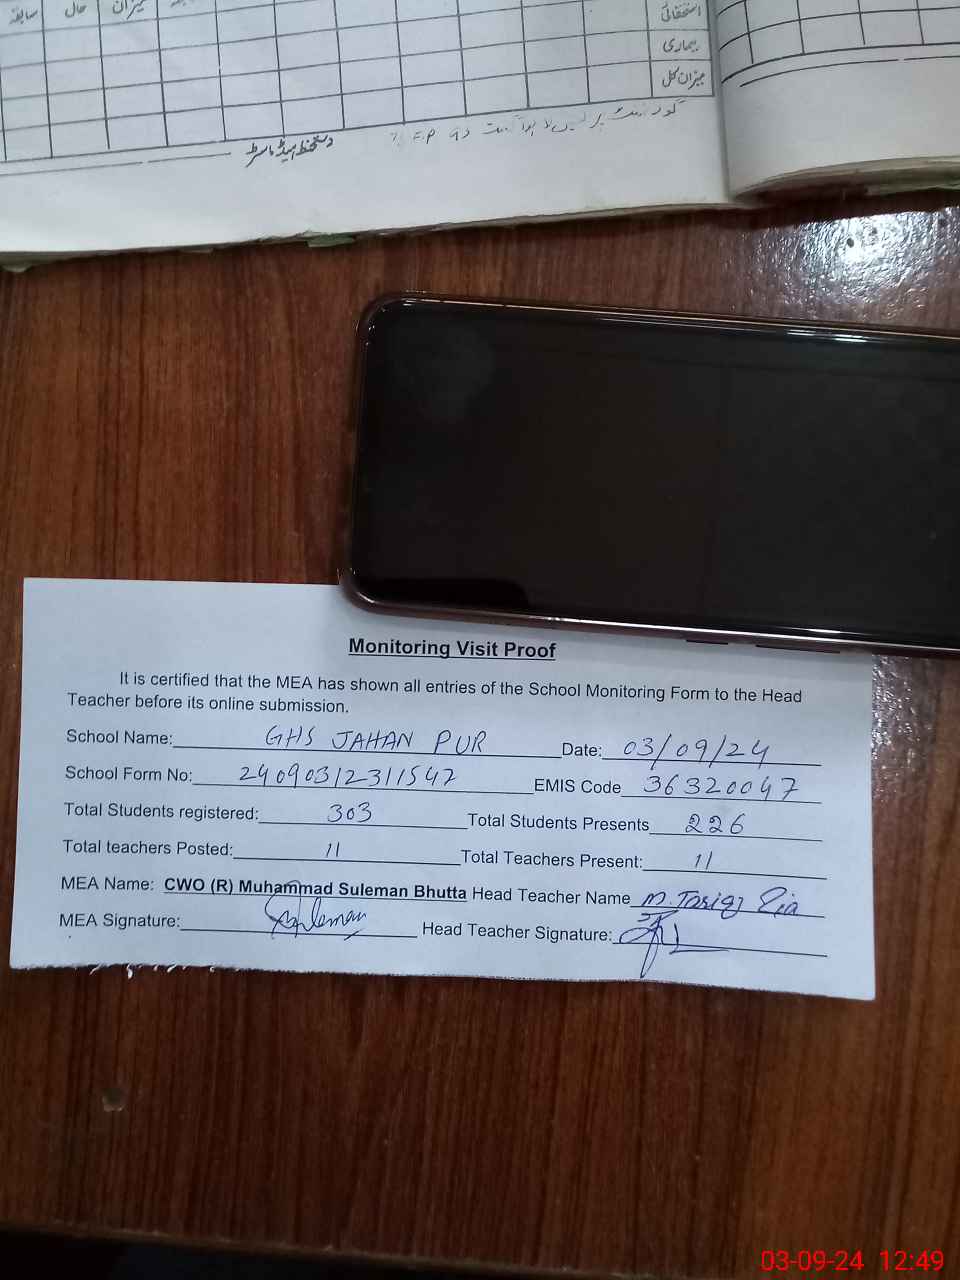 سابقہ حال میزان
استحقاقی
بیماری
میزان کل
دستخط ہیڈ ماسٹر
گورنمنٹ پر
Monitoring Visit Proof
It is certified that the MEA has shown all entries of the School Monitoring Form to the Head
Teacher before its online submission.
School Name: GHS JAHAN PUR Date: 03/09/24
School Form No: 24090312311547 EMIS Code 36320047
Total Students registered: 303 Total Students Presents 226
Total teachers Posted: 11 Total Teachers Present: 11
MEA Name: CWO (R) Muhammad Suleman Bhutta Head Teacher Name M. Tariq Zia
MEA Signature: Suleman Head Teacher Signature:
03-09-24 12:49